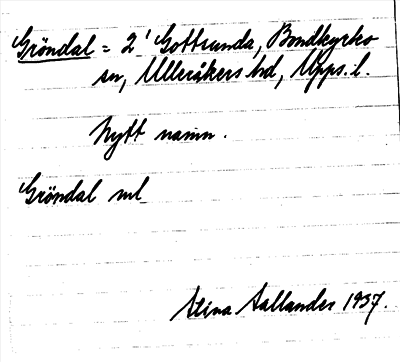 Gröndal = 2' Gottsunda, Bondkyrko
sn, Ulleråkers hd, Upps. l.
Nytt namn.
Gröndal ml
Stina Sallander 1937.